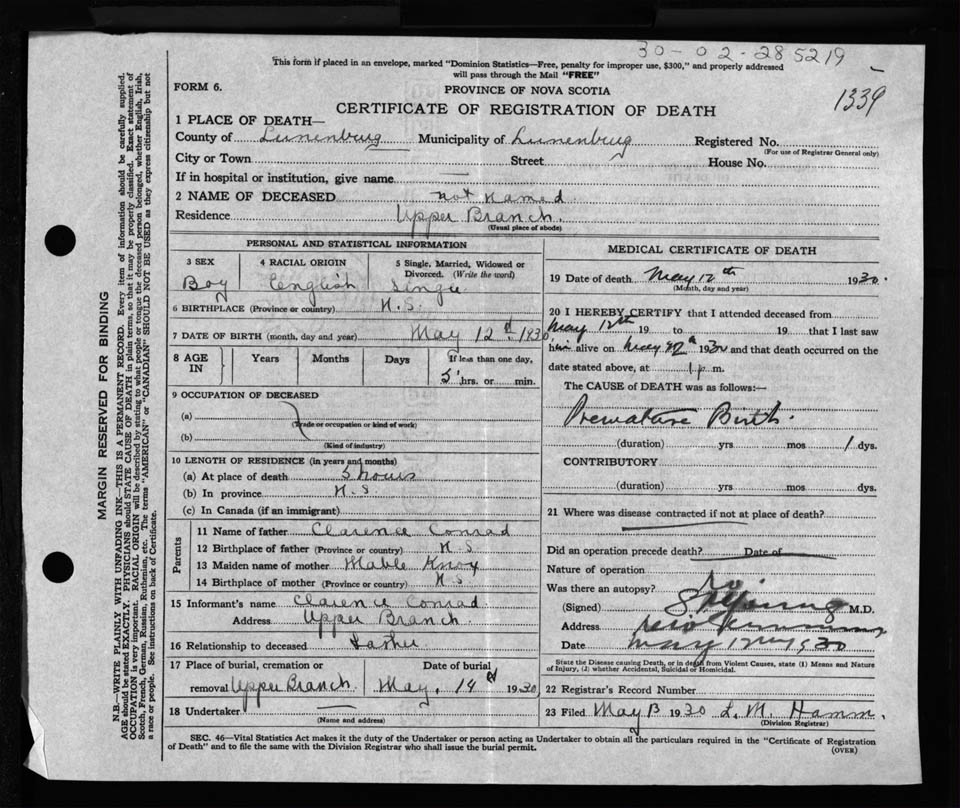 30-02-285219
This form if placed in an envelope, marked "Dominion Statistics—Free, penalty for improper use, $300," and properly addressed
will pass through the Mail "FREE"
FORM 6.
PROVINCE OF NOVA SCOTIA
1339
CERTIFICATE OF REGISTRATION OF DEATH
1 PLACE OF DEATH—
County of Lunenburg Municipality of Lunenburg Registered No.
(For use of Registrar General only)
City or Town Street House No.
If in hospital or institution, give name —
2 NAME OF DECEASED not named
Residence Upper Branch.
(Usual place of abode)
PERSONAL AND STATISTICAL INFORMATION
3 SEX 4 RACIAL ORIGIN 5 Single, Married, Widowed or
Divorced. (Write the word)
Boy English Single
6 BIRTHPLACE (Province or country) N.S.
7 DATE OF BIRTH (month, day and year) May 12th 1930
8 AGE IN Years Months Days If less than one day,
5 hrs. or min.
9 OCCUPATION OF DECEASED
(a)
(Trade or occupation or kind of work)
(b)
(Kind of industry)
10 LENGTH OF RESIDENCE (in years and months)
(a) At place of death 5 hours
(b) In province N.S
(c) In Canada (if an immigrant)
Parents
11 Name of father Clarence Conrad
12 Birthplace of father (Province or country) N.S
13 Maiden name of mother Mable Knox
14 Birthplace of mother (Province or country) N.S
15 Informant's name Clarence Conrad
Address Upper Branch.
16 Relationship to deceased Father
17 Place of burial, cremation or Date of burial
removal Upper Branch May, 14th 1930
18 Undertaker
(Name and address)
MEDICAL CERTIFICATE OF DEATH
19 Date of death May 12th 1930.
(Month, day and year)
20 I HEREBY CERTIFY that I attended deceased from
May 12th 19 to 19 that I last saw
him alive on May 1930 and that death occurred on the
date stated above, at 1 p m.
The CAUSE of DEATH was as follows:—
Premature Birth.
(duration) yrs mos 1 dys.
CONTRIBUTORY
(duration) yrs mos dys.
21 Where was disease contracted if not at place of death?
Did an operation precede death? Date of
Nature of operation
Was there an autopsy? No
(Signed) M.D.
Address
Date May 12 1930
State the Disease causing Death, or in death from Violent Causes, state (1) Means and Nature
of Injury, (2) whether Accidental, Suicidal or Homicidal.
22 Registrar's Record Number
23 Filed May 13 1930 L. M. Hamm.
(Division Registrar)
SEC. 46—Vital Statistics Act makes it the duty of the Undertaker or person acting as Undertaker to obtain all the particulars required in the "Certificate of Registration
of Death" and to file the same with the Division Registrar who shall issue the burial permit.
(OVER)
MARGIN RESERVED FOR BINDING
N.B.—WRITE PLAINLY WITH UNFADING INK—THIS IS A PERMANENT RECORD. Every item of information should be carefully supplied.
AGE should be stated EXACTLY. PHYSICIANS should STATE CAUSE OF DEATH in plain terms, so that it may be properly classified. Exact statement of
OCCUPATION is very important. RACIAL ORIGIN will be described by stating to what people or tongue the deceased person belonged, whether English, Irish,
Scotch, French, German, Russian, Ruthenian, etc. The terms "AMERICAN" or "CANADIAN" SHOULD NOT BE USED as they express citizenship but not
a race or people. See instructions on back of Certificate.